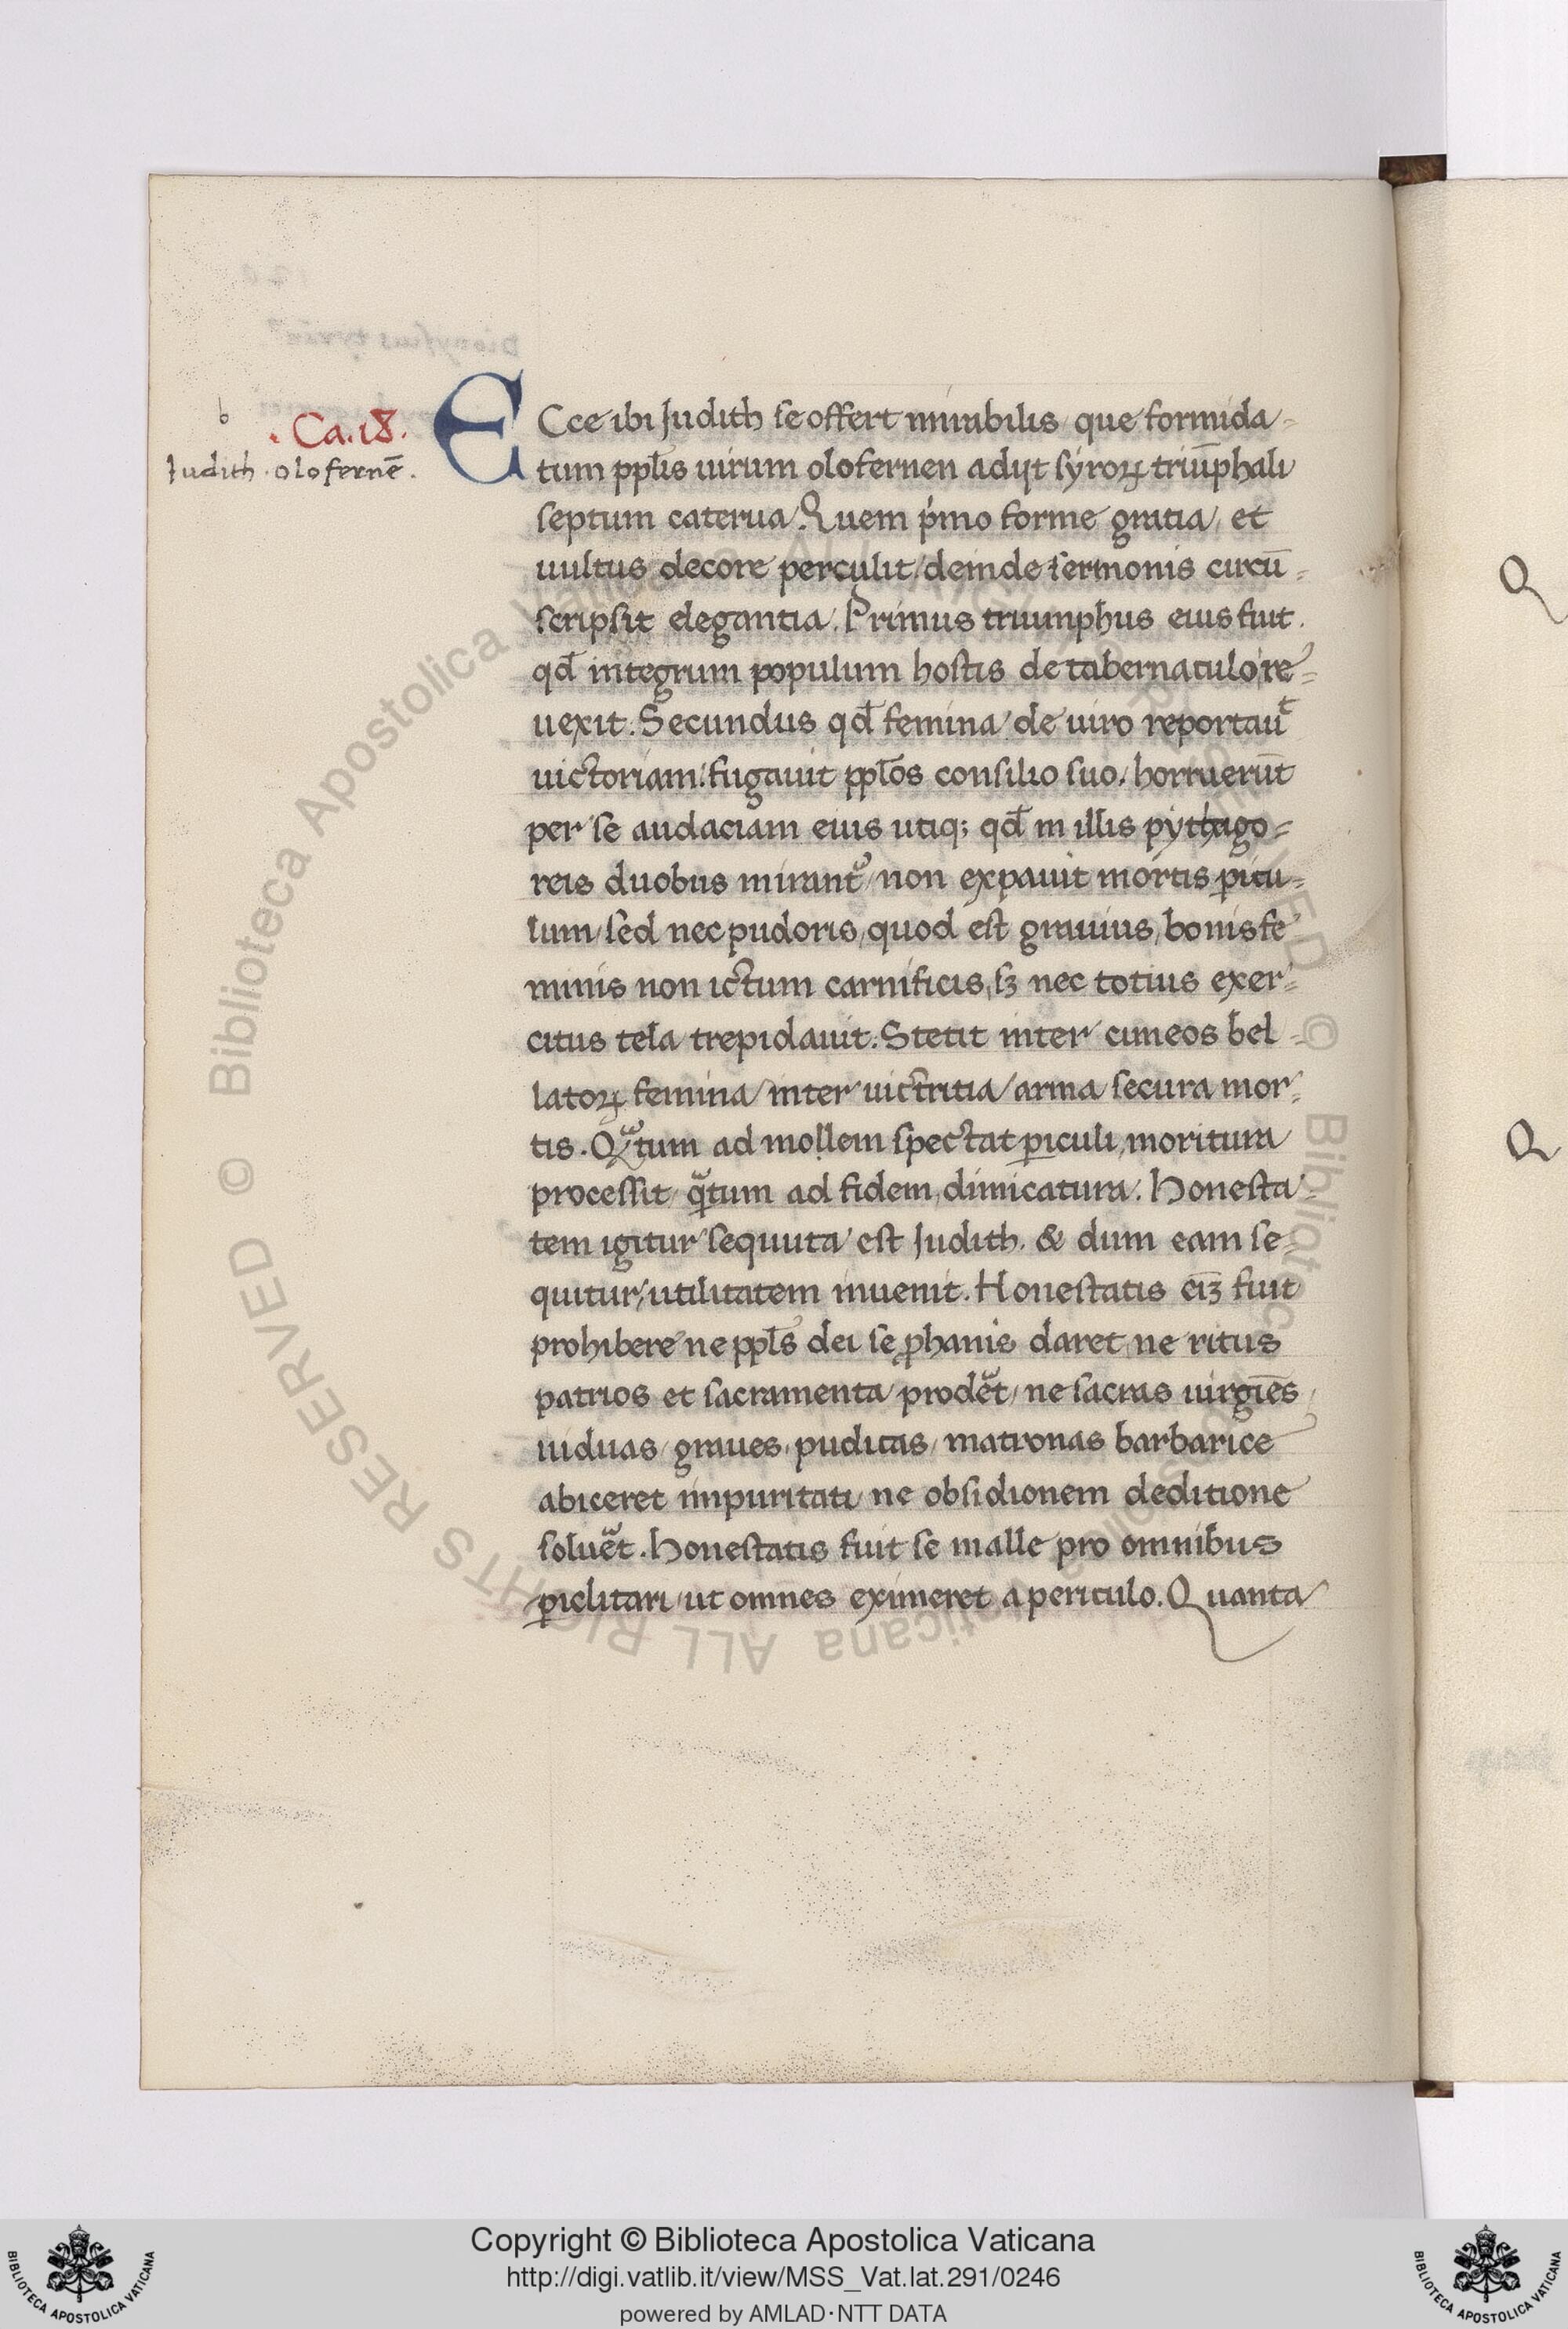 b
.Ca.18.
Judith . olofernē.
ECce ibi Judith se offert mirabilis que formida-
tum ppl̄is uirum olofernen adijt syroꝝ triūphali
septum caterua. Quem p̍mo forme gratia, et
uultus decore perculit. deinde sermonis circū-
scripsit elegantia. Primus triumphus eius fuit.
qđ integrum populum hostis de tabernaculo re-
uexit. Secundus qđ femina de uiro reportauͭ
uictoriam. fugauit ppl̄os consilio suo. horruerūt
per se audaciam eius utiq; qđ in illis pythago-
reis duobus mirant᷑ non expauit mortis ꝑicu-
lum sed nec pudoris, quod est grauius, bonis fe
minis non ictum carnificis, sꝫ nec totius exer-
citus tela trepidauit. Stetit inter cuneos bel-
latoꝝ femina inter uictritia arma secura mor-
tis. Qᷓtum ad mollem spectat ꝑiculi, moritura
processit qᷓtum ad fidem, dimicatura. Honesta-
tem igitur sequuta est Judith. & dum eam se-
quitur, utilitatem inuenit. Honestatis eīꝫ fuit
prohibere ne ppl̄s dei se ꝓhanis daret, ne ritus
patrios et sacramenta prode᷑t, ne sacras uirgiēs
uiduas graues, pudicas matronas barbarice
abiceret impuritati ne obsidionem deditione
solue᷑t. Honestatis fuit se malle pro omnibus
ꝑiclitari ut omnes eximeret a periculo. Quanta
© Biblioteca Apostolica Vaticana ALL RIGHTS RESERVED © Biblioteca Apostolica Vaticana ALL RIGHTS RESERVED
Q
Q
BIBLIOTECA APOSTOLICA VATICANA
Copyright © Biblioteca Apostolica Vaticana
http://digi.vatlib.it/view/MSS_Vat.lat.291/0246
powered by AMLAD·NTT DATA
BIBLIOTECA APOSTOLICA VATICANA